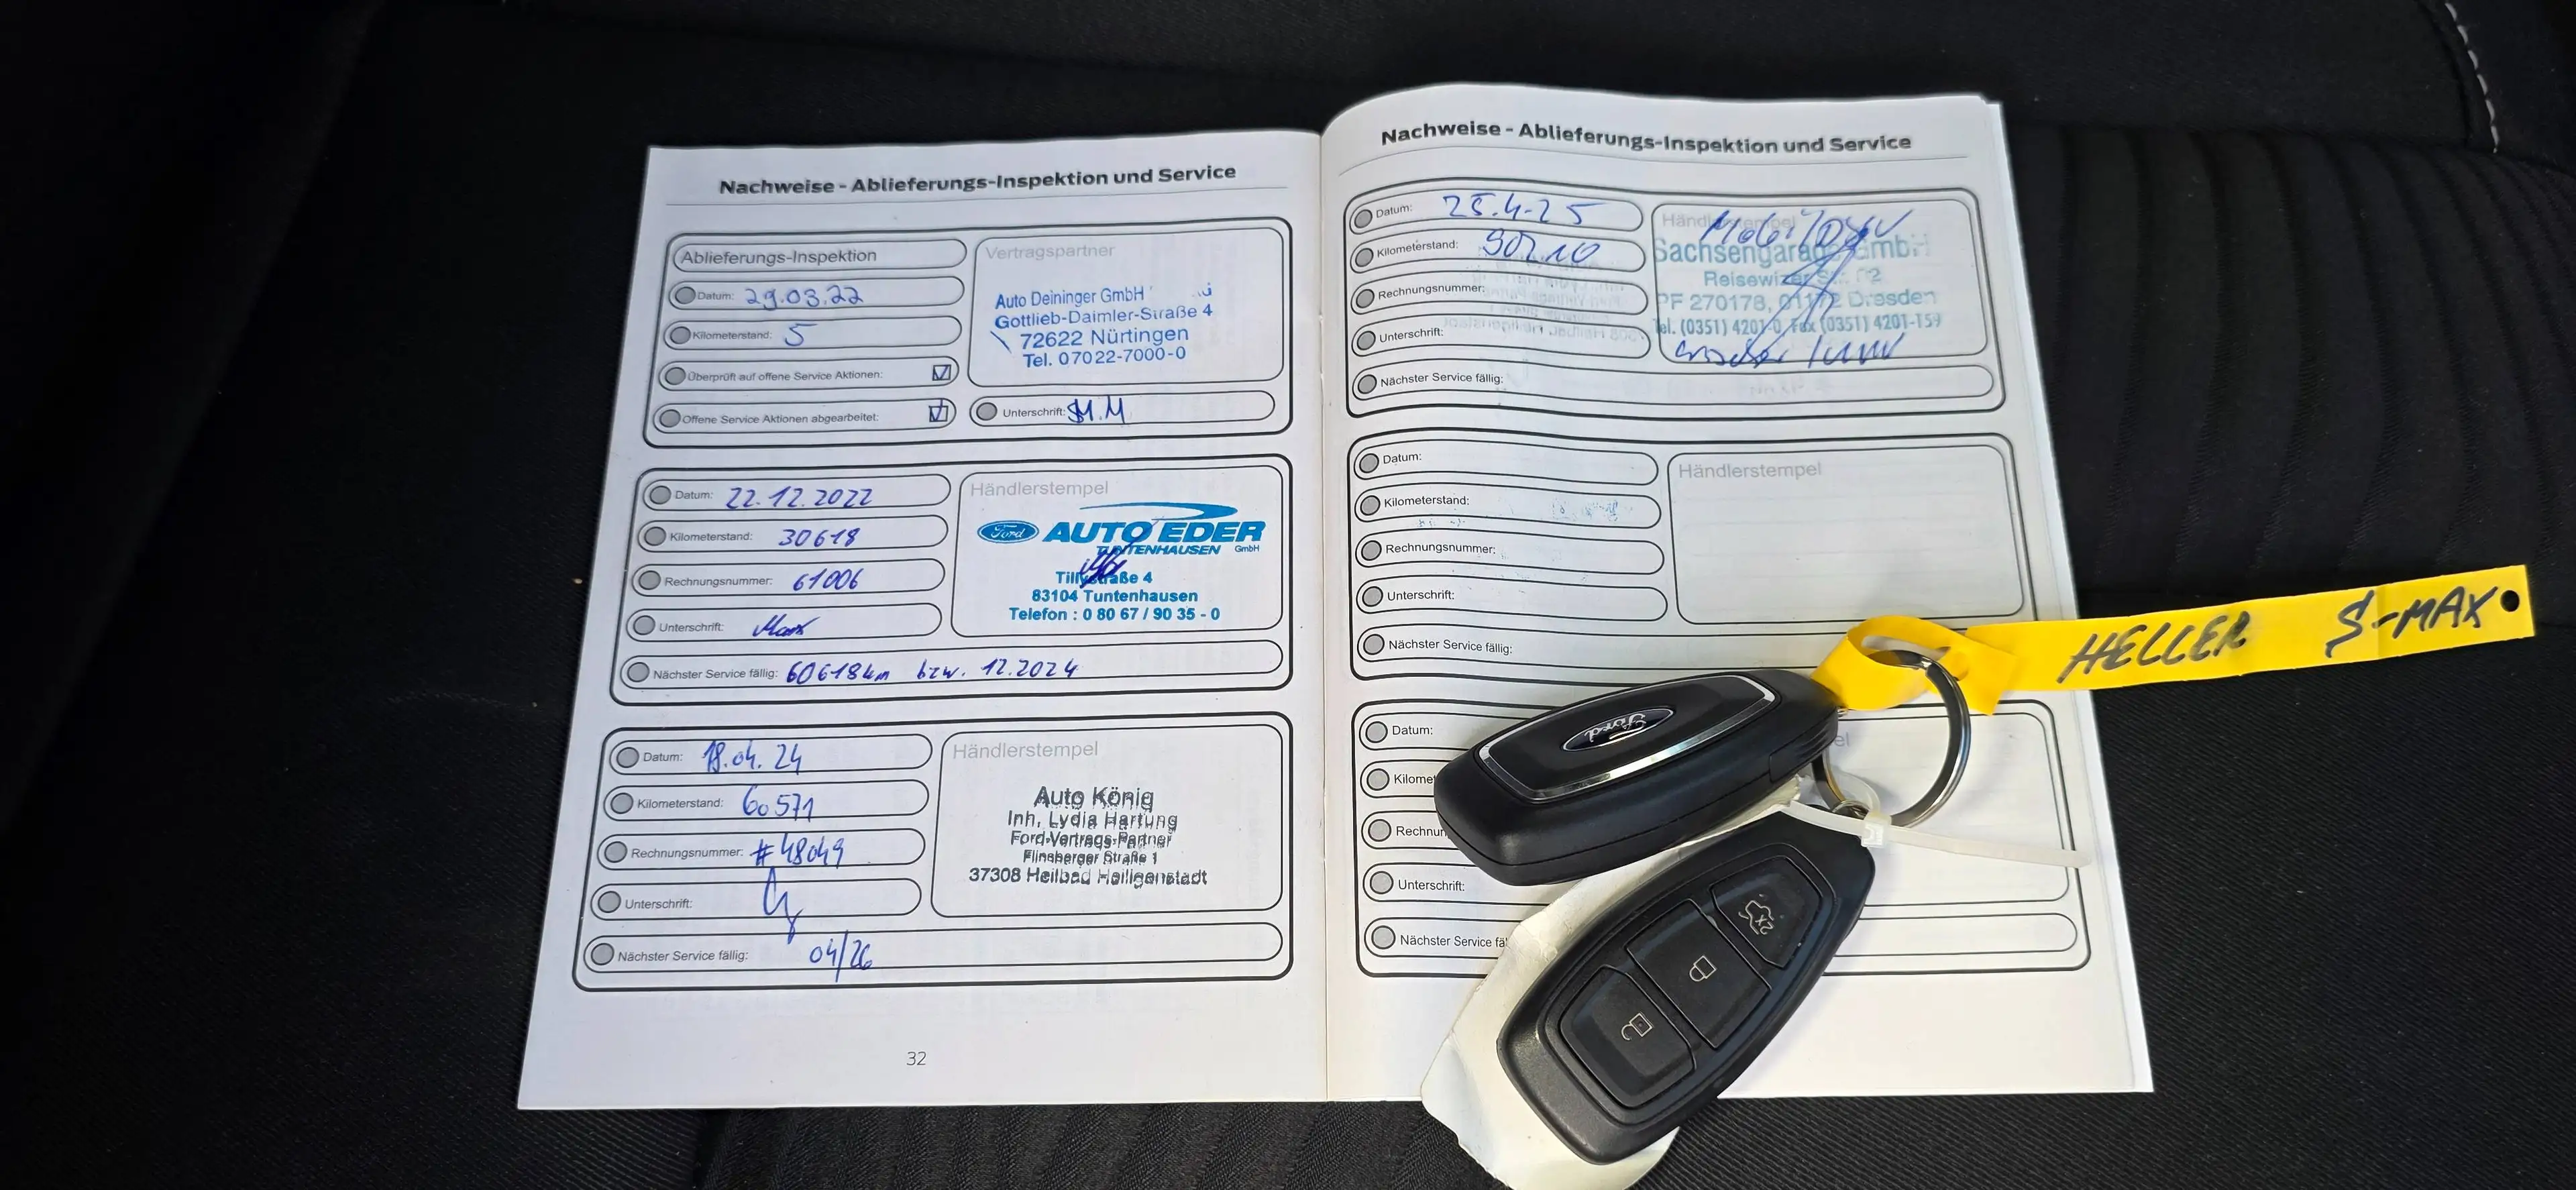 Nachweise - Ablieferungs-Inspektion und Service
Ablieferungs-Inspektion
Datum: 29.03.22
Kilometerstand: 5
Überprüft auf offene Service Aktionen:
Offene Service Aktionen abgearbeitet:
Vertragspartner
Auto Deininger GmbH
Gottlieb-Daimler-Straße 4
72622 Nürtingen
Tel. 07022-7000-0
Unterschrift:
Datum: 22.12.2022
Kilometerstand: 30618
Rechnungsnummer: 61006
Unterschrift:
Nächster Service fällig: 60618km bzw. 12.2024
Händlerstempel
Ford AUTO EDER
TUNTENHAUSEN GmbH
Tillystraße 4
83104 Tuntenhausen
Telefon : 0 80 67 / 90 35 - 0
Datum: 18.04.24
Kilometerstand: 60571
Rechnungsnummer: #48049
Unterschrift:
Nächster Service fällig: 04/26
Händlerstempel
Auto König
Inh. Lydia Hartung
Ford-Vertrags-Partner
Flinsberger Straße 1
37308 Heilbad Heiligenstadt
32
Nachweise - Ablieferungs-Inspektion und Service
Datum: 25.4.25
Kilometerstand:
Rechnungsnummer:
Unterschrift:
Nächster Service fällig:
Händlerstempel
Sachsengarage GmbH
PF 270178, 01172 Dresden
Tel. (0351) 4201-0, Fax (0351) 4201-159
Datum:
Kilometerstand:
Rechnungsnummer:
Unterschrift:
Nächster Service fällig:
Händlerstempel
Datum:
Kilomet
Rechnun
Unterschrift:
Nächster Service fäl
el
HELLER S-MAX
Ford
2x